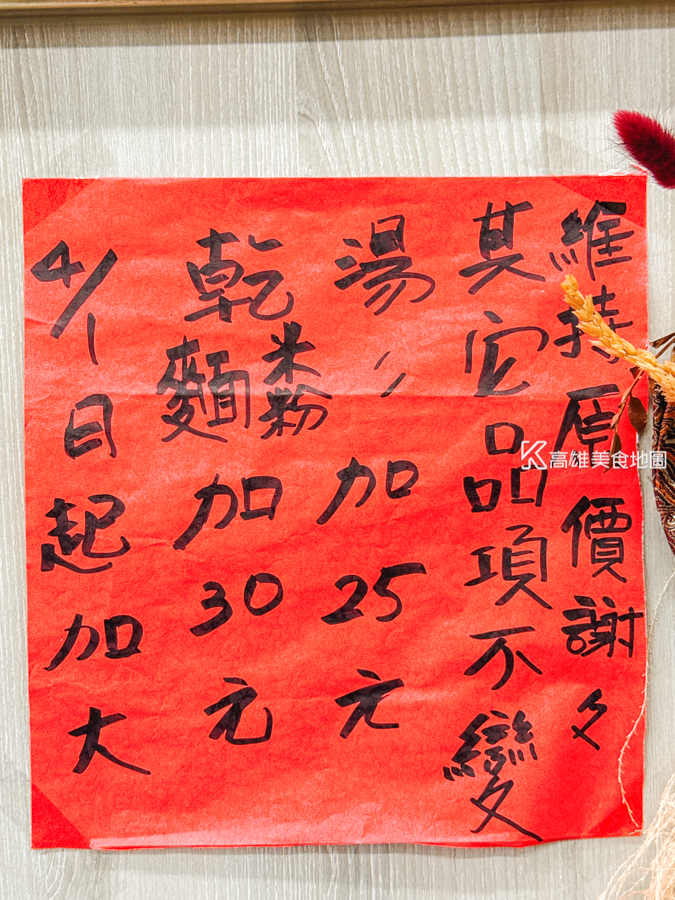 4/1日起加大
乾麵米粉加30元
湯〃加25元
其它品項不變
維持原價謝々
高雄美食地圖